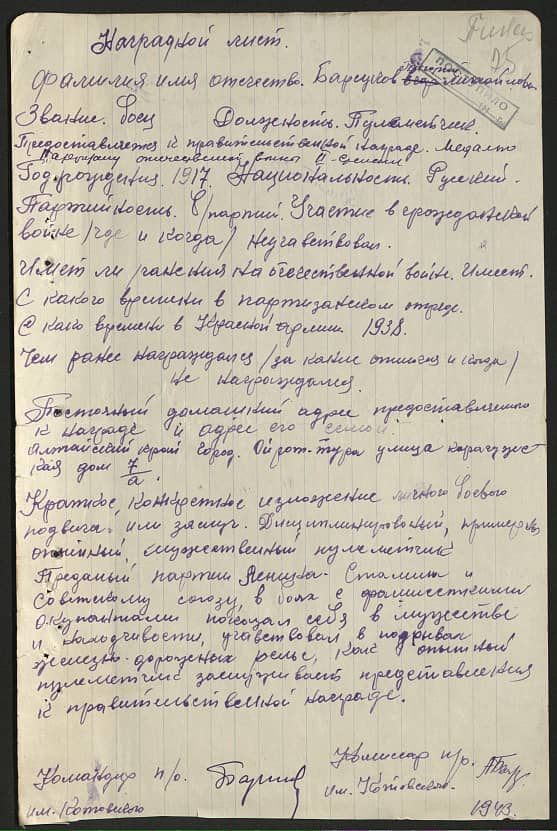 Наградной лист.
75
Фамилия имя отчество. Барсуков Михайлов
Звание. боец Должность. Пулеметчик.
Предоставляется к правительственной награде. Медалью
Партизану отечественной войны II-степени
Год рождения. 1917. Национальность. Русский.
Партийность. б/партий. Участие в гражданской
войне /где и когда/ неучавствовал.
Имет ли ранения на отечественной войне. Имеет.
С какого времени в партизанском отряде.
С како времени в Красной армии. 1938.
Чем ранее награждался /за какие отличия и когда/
не награждался.
Постоянный домашний адрес предоставляемого
к награде и адрес его семьи.
Алтайский край город. Ойрот-тура улица
дом 7/а.
Краткое, конкретное изложение личного боевого
подвига или заслуг. Дисциплинированый, примерный
опытный, мужественный пулеметчик
Преданый партии Ленина - Сталина и
Советскому союзу, в боях с фашистскими
окупантами показал себя в мужестве
и находчивости, учавствовал в подрывах
железно-дорожных рельс, как опытный
пулеметчик заслуживает представления
к правительственной награде.
Командир п/о.
им. Котовского
Комиссар п/о.
им. Котовского.
1943.